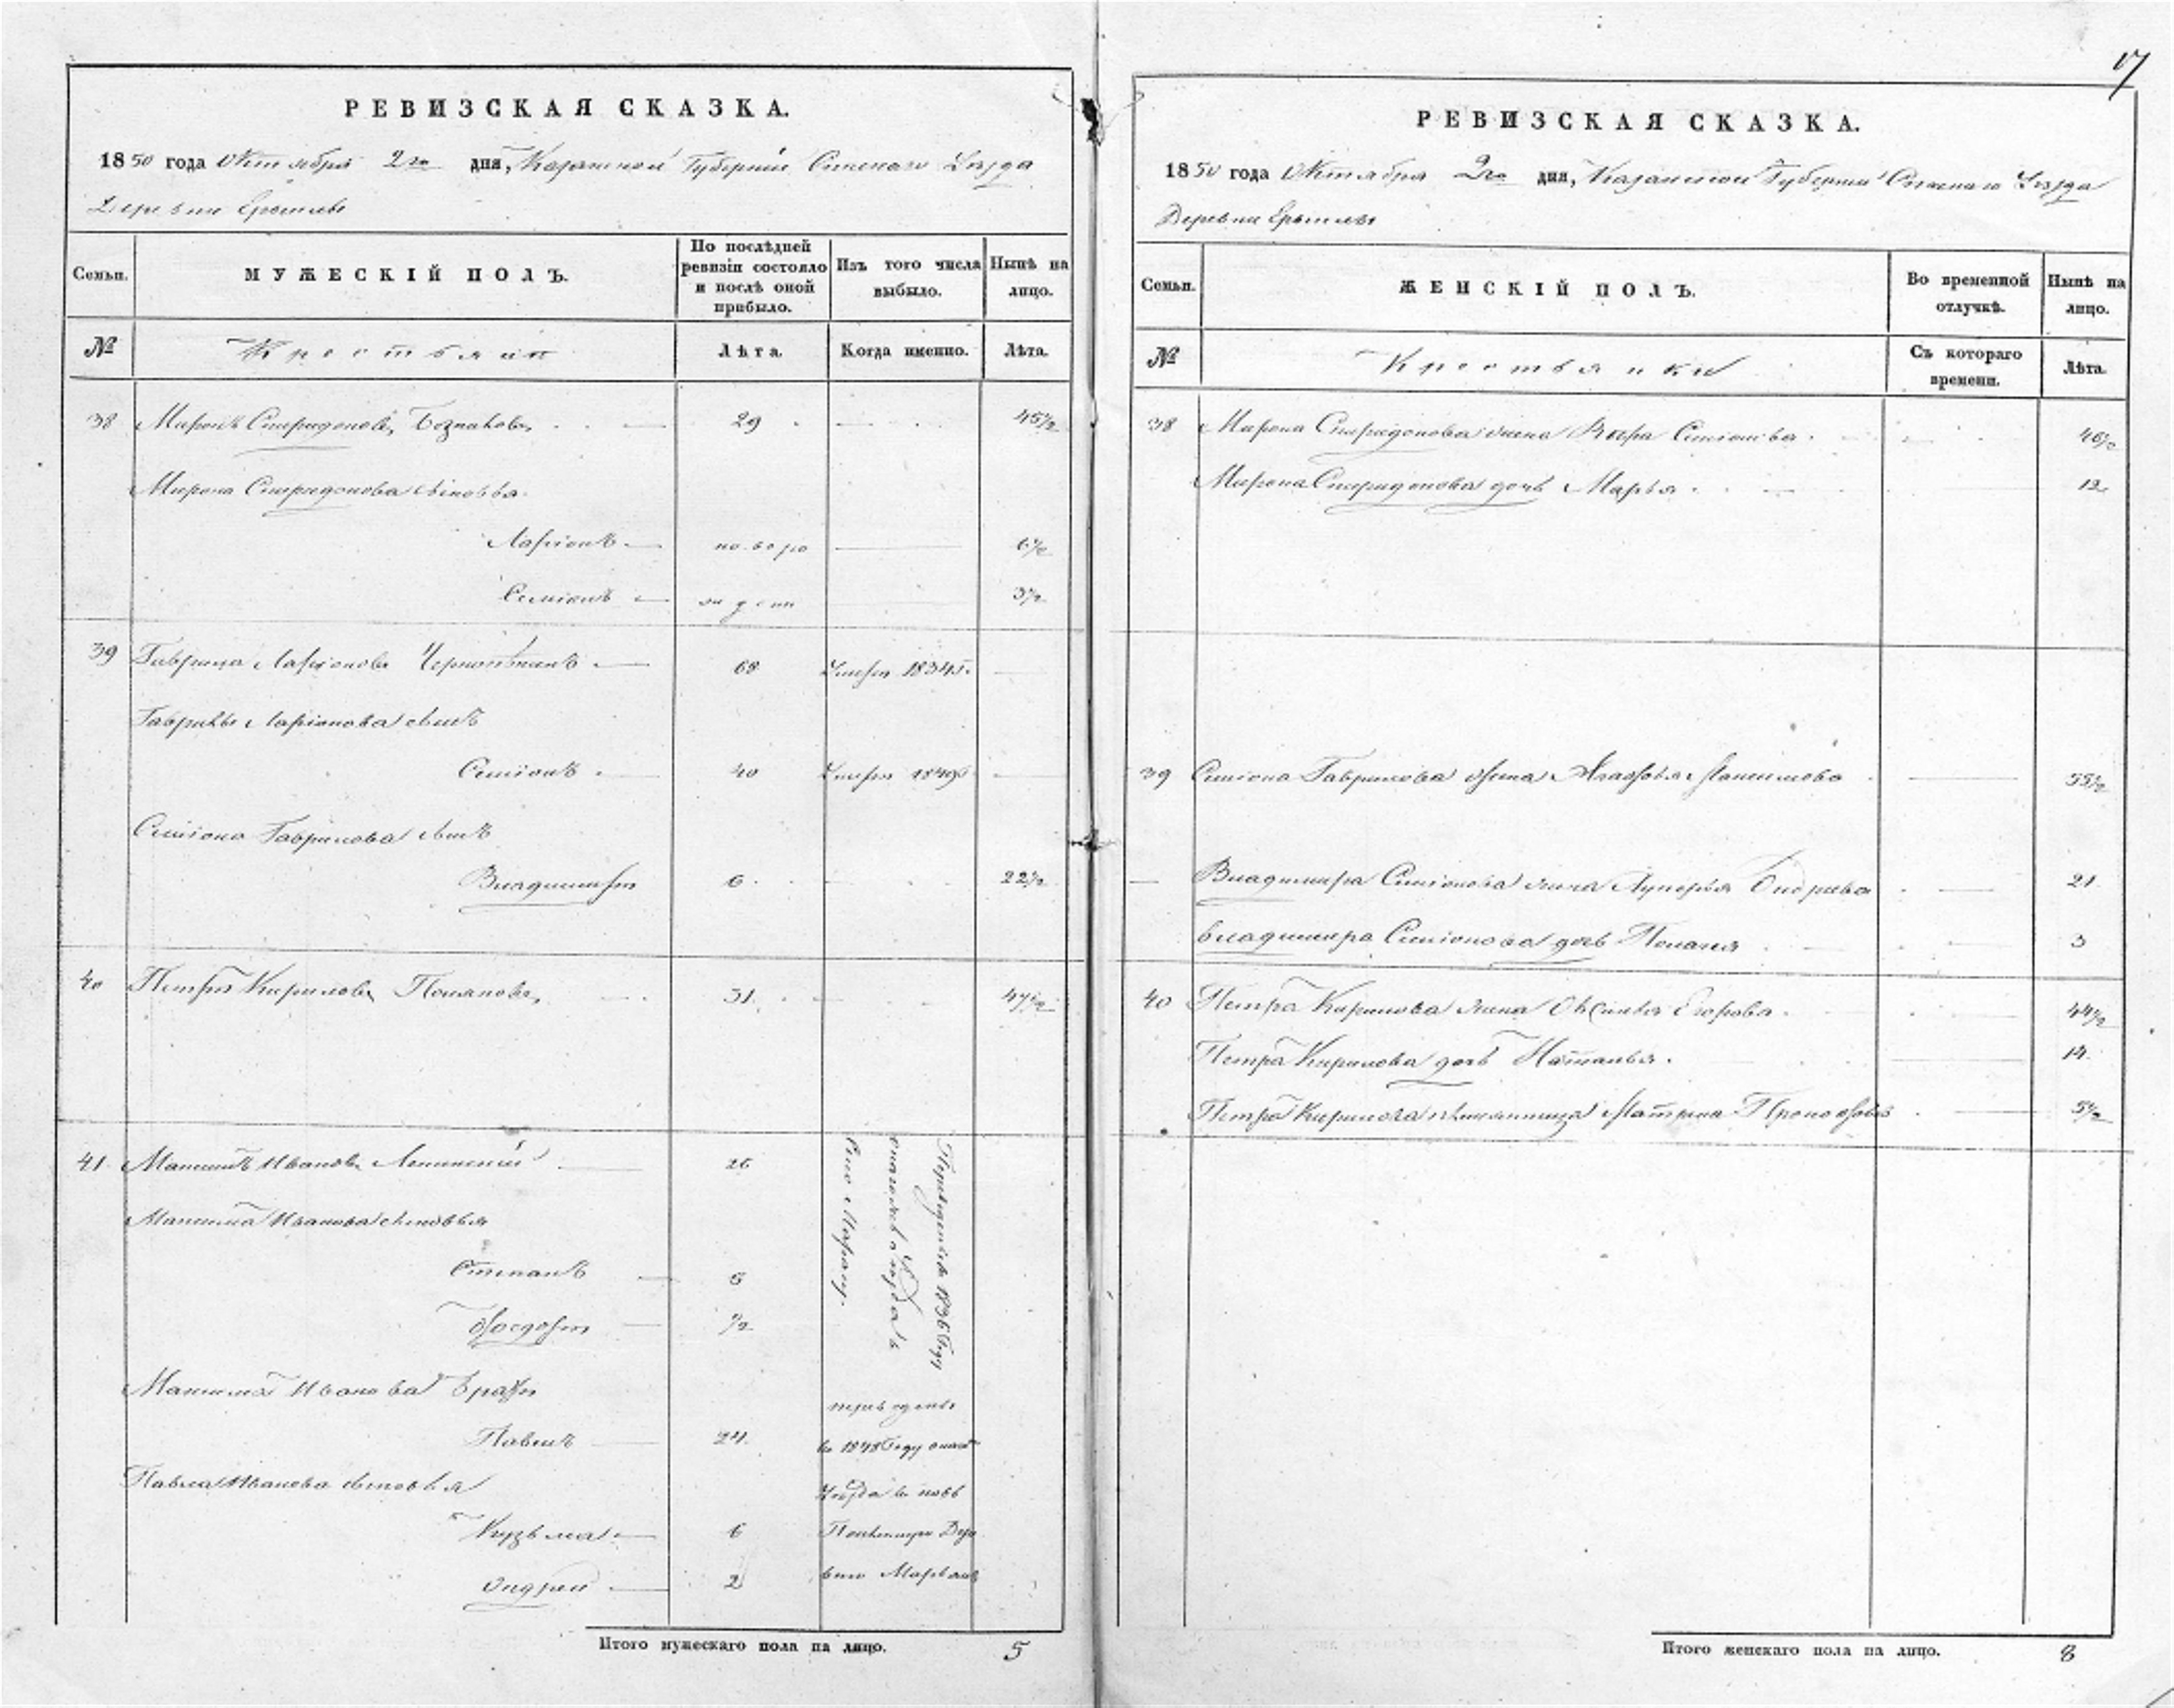 17
РЕВИЗСКАЯ СКАЗКА.
1850 года Октября 2го дня, Казанской Губернии Спаскаго Уезда
Деревни
Семьи.
МУЖЕСКІЙ ПОЛЪ.
По послѣдней ревизіи состояло и послѣ оной прибыло.
Изъ того числа выбыло.
Нынѣ на лицо.
№
Крестьянъ
Лѣта.
Когда именно.
Лѣта.
38 Миронъ Спиридоновъ 29 45½
Мирона Спиридонова сыновья
Ларіонъ но во ро 6½
Симіонъ ж д ены 3½
39 Гаврила Ларіоновъ 68 Умеръ 1834г.
Гаврилы Ларіонова сынъ
Симіонъ 40 Умеръ 1849
Симіона Гаврилова сынъ
Владимиръ 6 22½
40 Петръ Кириловъ 31 47½
41 Максимъ Ивановъ 26
Максима Иванова сыновья
Степанъ 5
Ѳедоръ ½
Максима Иванова братъ
Павелъ 24
Павла Иванова сыновья
Кузьма 6
Ондрей 2
въ 1836 Году
въ 1848 Году
Уѣзда въ
Итого мужескаго пола на лицо. 5
РЕВИЗСКАЯ СКАЗКА.
1850 года Октября 2го дня, Казанской Губерніи Спаскаго Уезда
Деревни
Семьи.
ЖЕНСКІЙ ПОЛЪ.
Во временной отлучкѣ.
Нынѣ на лицо.
№
Крестьянки
Съ котораго времени.
Лѣта.
38 Мирона Спиридонова жена Вѣра Симіонова 46½
Мирона Спиридонова дочь Марья 12
39 Симіона Гаврилова жена Максимова 55½
Владимира Симіонова жена Лукерья Ондрева 21
Владимира Симіонова дочь Пелагея 3
40 Петра Кирилова жена Оксинья Егорова 44½
Петра Кирилова дочь Наталья 14
Петра Кирилова племянница Матрена 5½
Итого женскаго пола на лицо. 8